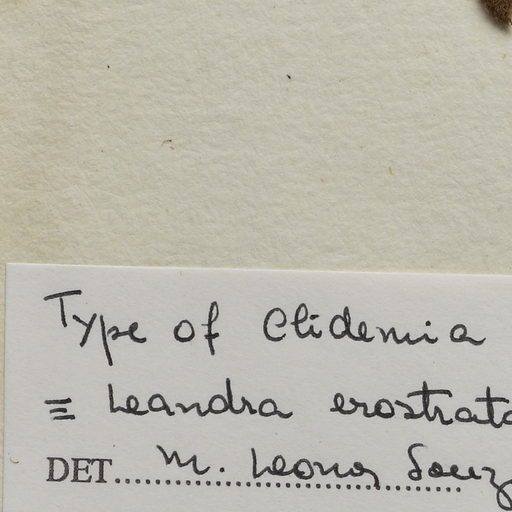 Type of Clidemia
≡ Leandra erostrata
DET.......M. Leoni Souz